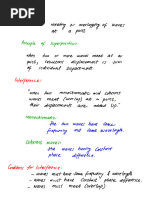 meeting or overlapping of waves
at a point.
Principle of Superposition:
when two or more waves meet at a
point, resultant displacement is sum
of individual displacement.
Interference:
when two monochromatic and coherent
waves meet (overlap) at a point,
their displacements are added.
Monochromatic:
the two waves have same
frequency and same wavelength.
Coherent waves:
the waves having constant
phase difference.
Conditions for Interference:
- waves must have same frequency & wavelength
- waves must have constant phase difference.
- waves must meet (overlap).